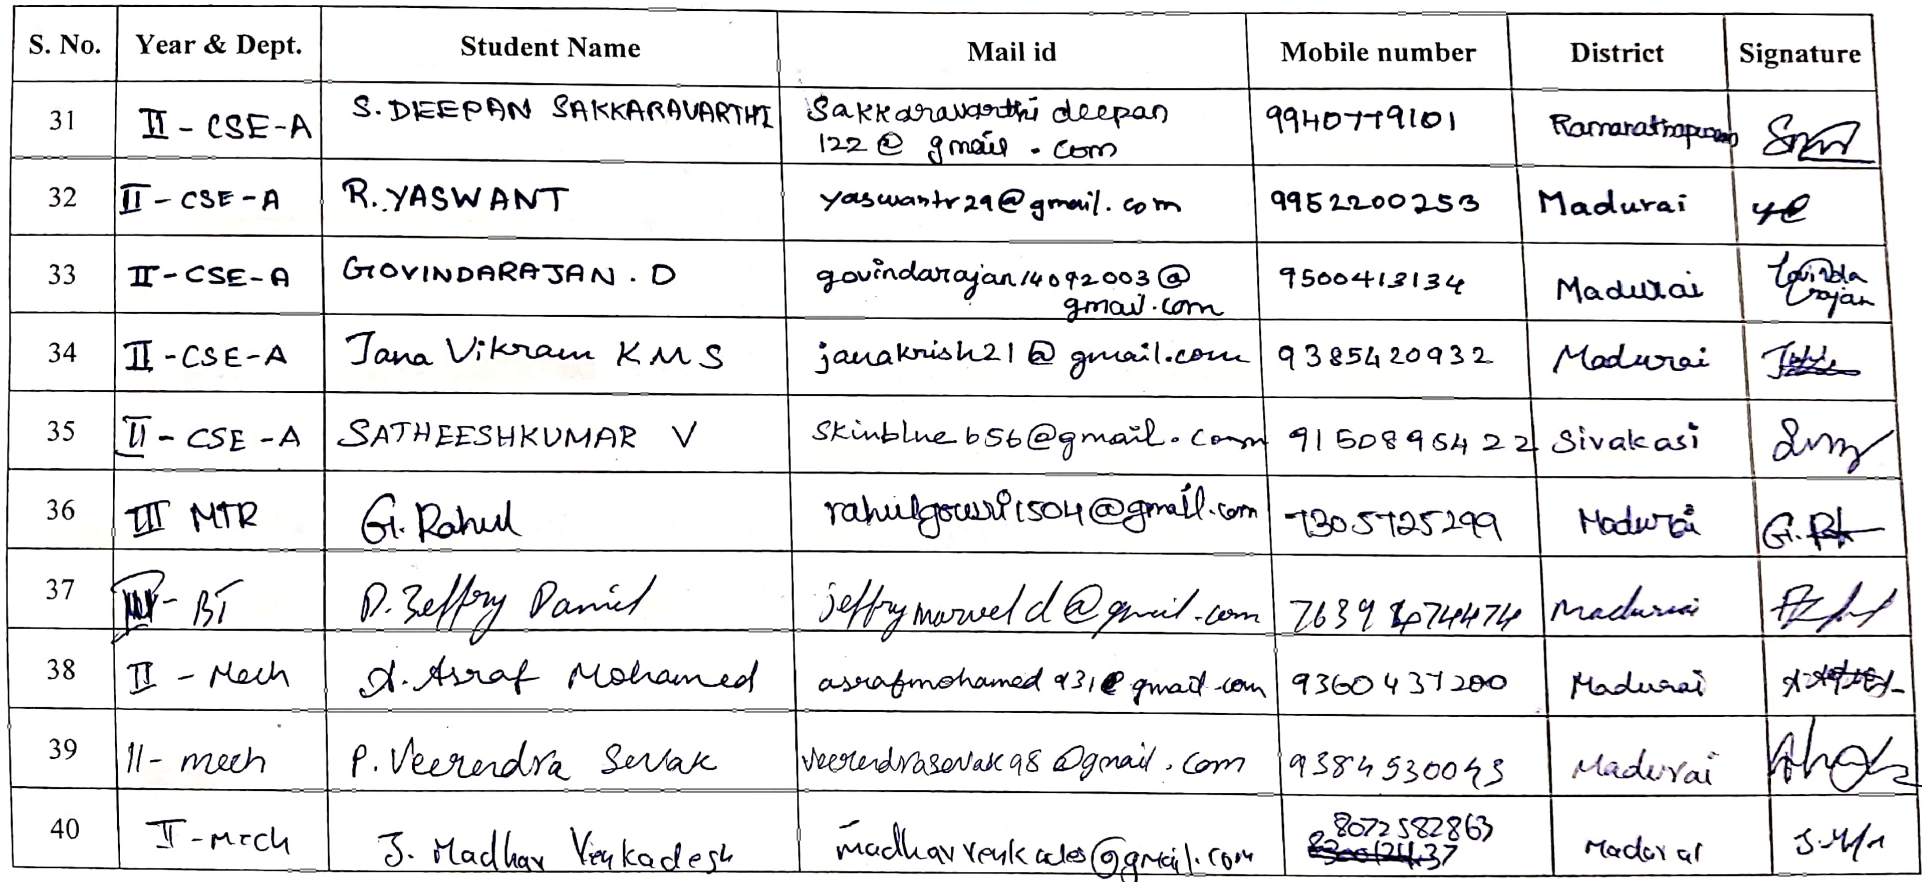 S. No. Year & Dept. Student Name Mail id Mobile number District Signature
31 II - CSE-A S. DEEPAN SAKKARAVARTHI Sakkaravarthi deepan 9940779101 Ramanathapuram
122@ gmail . com
32 II - CSE - A R. YASWANT yaswantr29@gmail.com 9952200253 Madurai
33 II - CSE - A GOVINDARAJAN . D govindarajan14092003@ 9500413134 Madurai Govinda
gmail.com rajan
34 II - CSE - A Jana Vikram K M S janakrish21@gmail.com 9385420932 Madurai
35 II - CSE - A SATHEESHKUMAR V skinblue656@gmail.com 9150895422 Sivakasi
36 III MTR G. Rahul rahulgowri1504@gmail.com 7305725299 Madurai
37 BT D. Zeffry Daniel jeffrymarveld@gmail.com Madurai
38 II - Mech A. Asraf Mohamed asrafmohamed931@gmail.com 9360437200 Madurai
39 II - mech P. Veerendra Sevak veerendrasevak98@gmail.com 9384530043 Madurai
40 II - Mech J. Madhav Venkadesh madhavvenkades@gmail.com 8072582863 Madurai